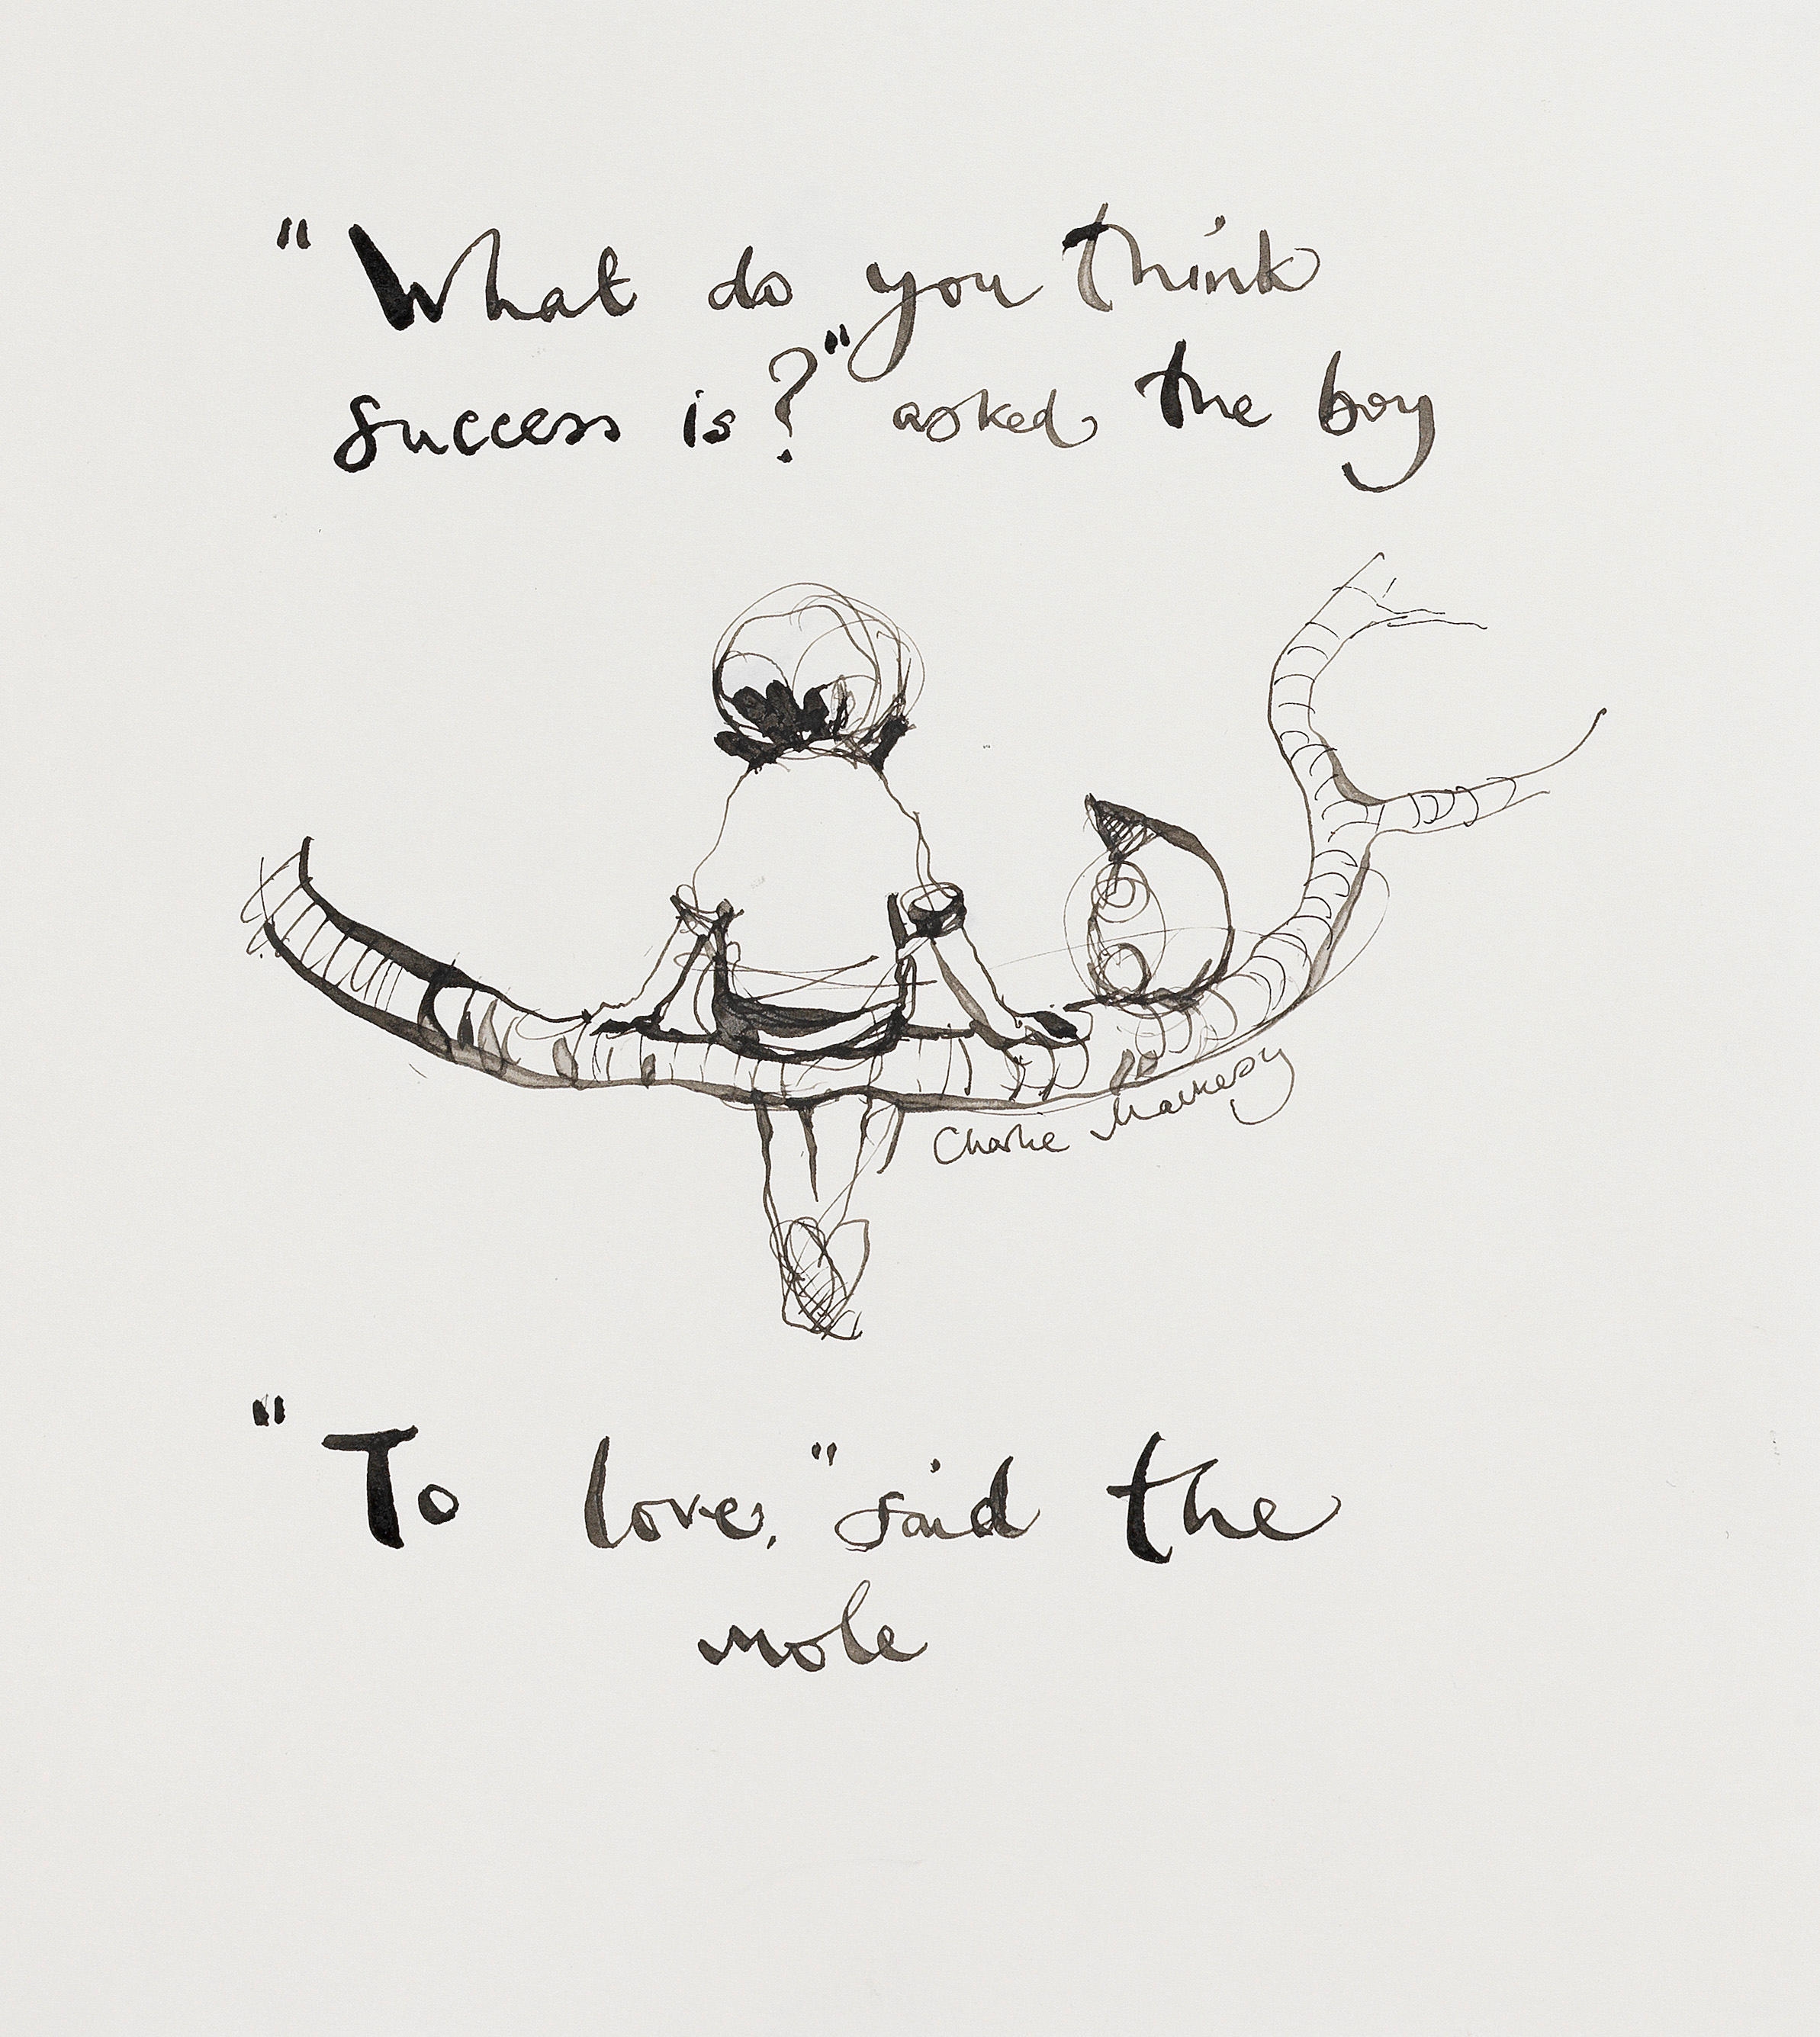 "What do you think
success is?" asked the boy
Charlie Mackesy
"To love," said the
mole